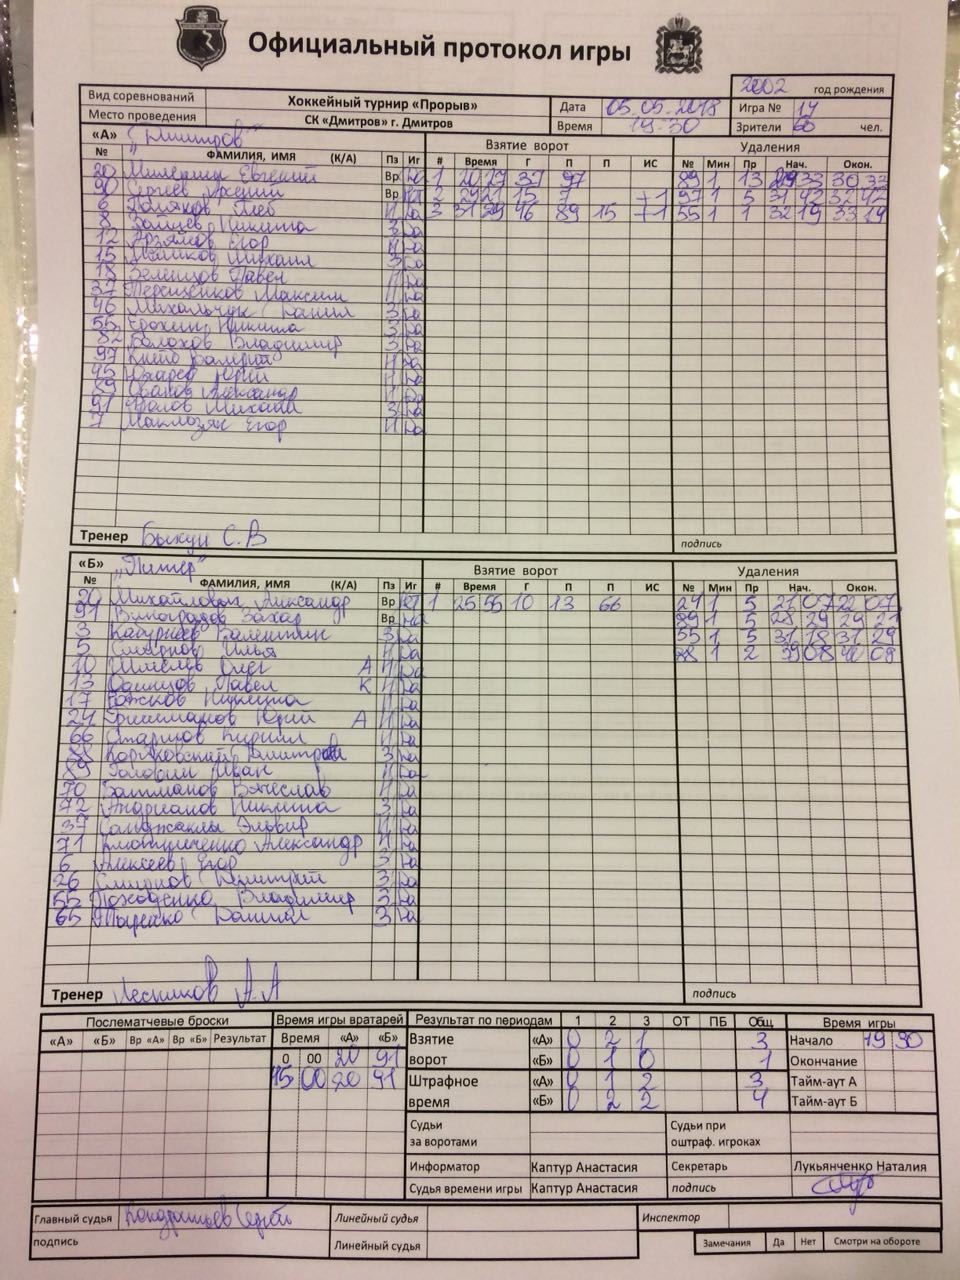 Официальный протокол игры
2002 год рождения
Вид соревнований Хоккейный турнир «Прорыв» Дата 05.05.2018 Игра №
Место проведения СК «Дмитров» г. Дмитров Время Зрители 60 чел.
«А» "Дмитров" Взятие ворот Удаления
№ ФАМИЛИЯ, ИМЯ (К/А) Пз Иг # Время Г П П ИС № Мин Пр Нач. Окон.
20 Евгений Вр 1 20 29 37 97 89 1 13 30 33
90 Сергеев Вр 2 29 21 15 7 +1 97 1 5 31 42 32 42
6 Поляков Глеб Н Да 3 31 29 46 89 15 55 1 1 32 19 33 19
8 Зайцев Никита З Да
12 Егор Н Да
15 Михаил З Да
18 Павел Н Да
37 Терещенков Максим Н Да
46 Михальчук Данил З Да
55 Ерохин Никита З Да
82 Волохов Владимир З Да
97 Валерий Н Да
95 Юрий Н Да
89 Александр Н Да
91 Фролов Михаил З Да
7 Егор Н Да
Тренер С.В
подпись
«Б» "Питер" Взятие ворот Удаления
№ ФАМИЛИЯ, ИМЯ (К/А) Пз Иг # Время Г П П ИС № Мин Пр Нач. Окон.
20 Александр Вр 1 25 55 10 13 66 24 1 5 21 07 22 07
91 Виноградов Захар Вр 89 1 5 28 29 29 21
3 Валентин З Да 55 1 5 31 18 31 29
5 Смирнов Илья Н Да 88 1 2 39 08 40 08
10 Шмелёв Олег А Н Да
13 Одинцов Павел К Н Да
17 Н Да
24 Юрий А Н Да
66 Кирилл Н Да
88 Дмитрий З Да
89 Головин Иван Н Да
70 Вячеслав Н Да
72 Андрианов Никита З Да
37 Эльвир Н Да
71 Александр Н Да
6 Алексеев Егор З Да
26 Смирнов Дмитрий З Да
55 Владимир З Да
65 Даниил З Да
Тренер Лесников А.А
подпись
Послематчевые броски Время игры вратарей Результат по периодам 1 2 3 ОТ ПБ Общ. Время игры
«А» «Б» Вр «А» Вр «Б» Результат Время «А» «Б» Взятие «А» 0 2 1 3 Начало 19 30
0 00 20 91 ворот «Б» 0 1 0 1 Окончание
15 00 20 91 Штрафное «А» 0 1 2 3 Тайм-аут А
время «Б» 0 2 2 4 Тайм-аут Б
Судьи за воротами Судьи при оштраф. игроках
Информатор Каптур Анастасия Секретарь Лукьянченко Наталия
Судья времени игры Каптур Анастасия подпись
Главный судья Линейный судья Инспектор
подпись Линейный судья Замечания Да Нет Смотри на обороте